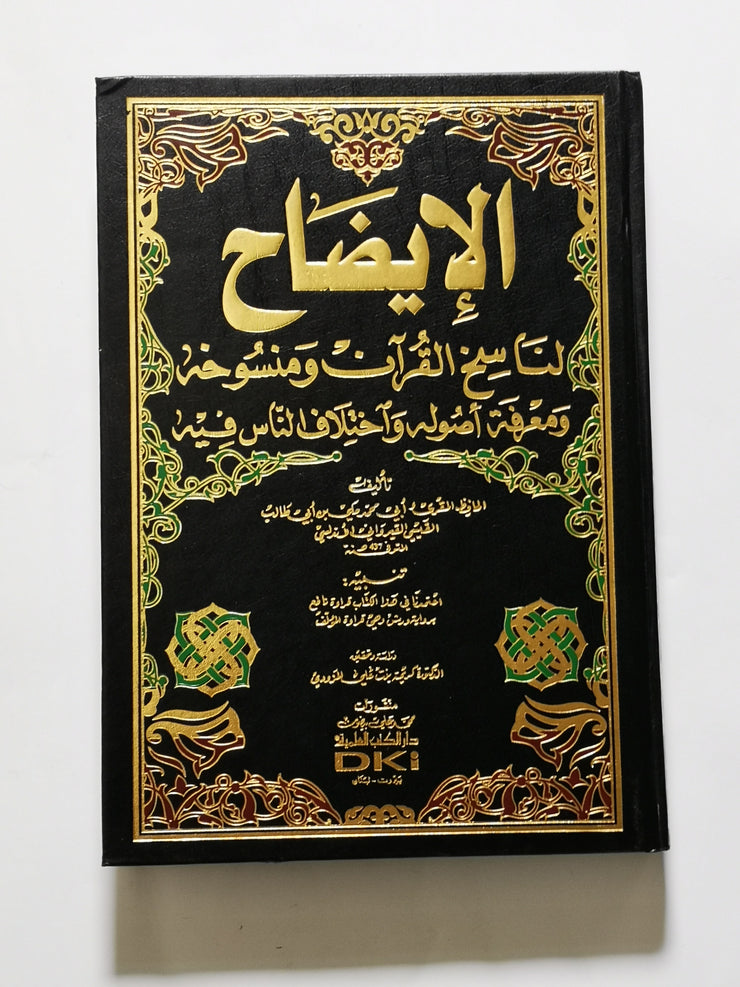 الإيضاح
لناسخ القرآن ومنسوخه
ومعرفة أصوله واختلاف الناس فيه
تأليف
الحافظ المقرئ أبي محمد مكي بن أبي طالب
القيسي القيرواني الأندلسي
المتوفى 437 سنة
تنبيه:
اعتمدنا في هذا الكتاب قراءة نافع
برواية ورش وهي قراءة المؤلف
دراسة وتحقيق
الدكتورة كريمة بنت علي
منشورات
محمد علي بيضون
دار الكتب العلمية
DKi
بيروت - لبنان